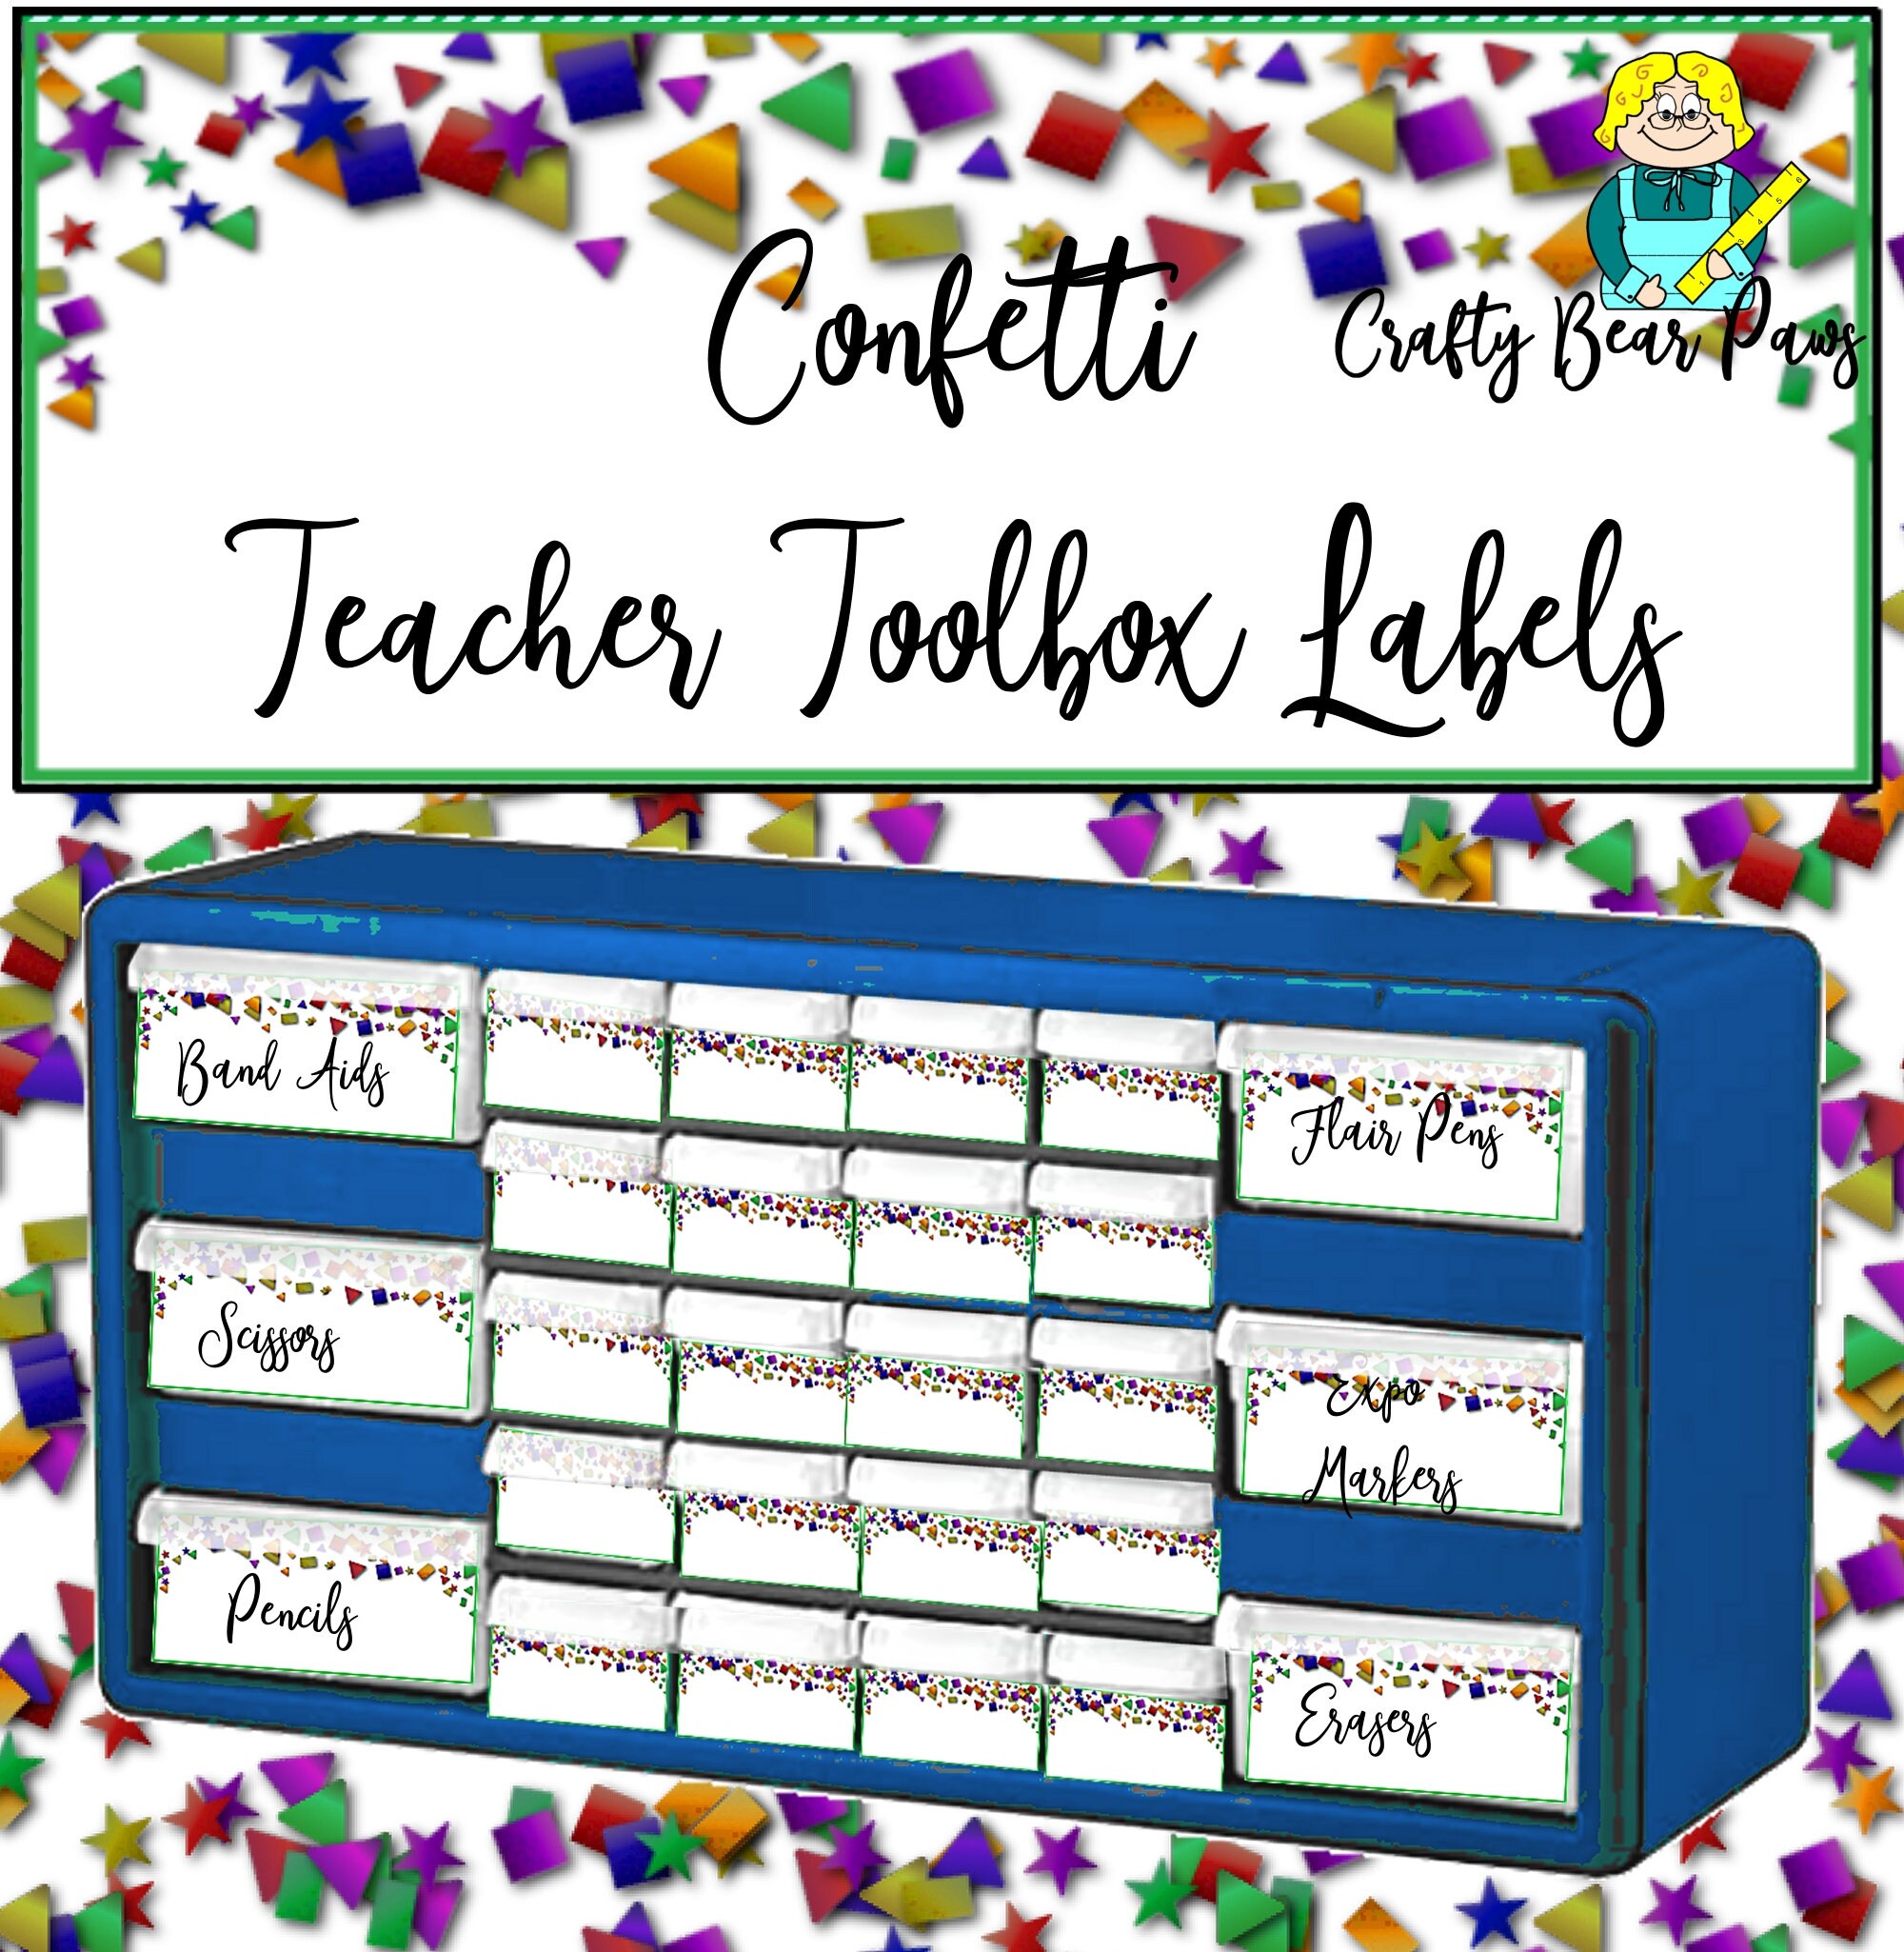 Confetti
Crafty Bear Paws
Teacher Toolbox Labels
Band Aids
Flair Pens
Scissors
Expo
Markers
Pencils
Erasers